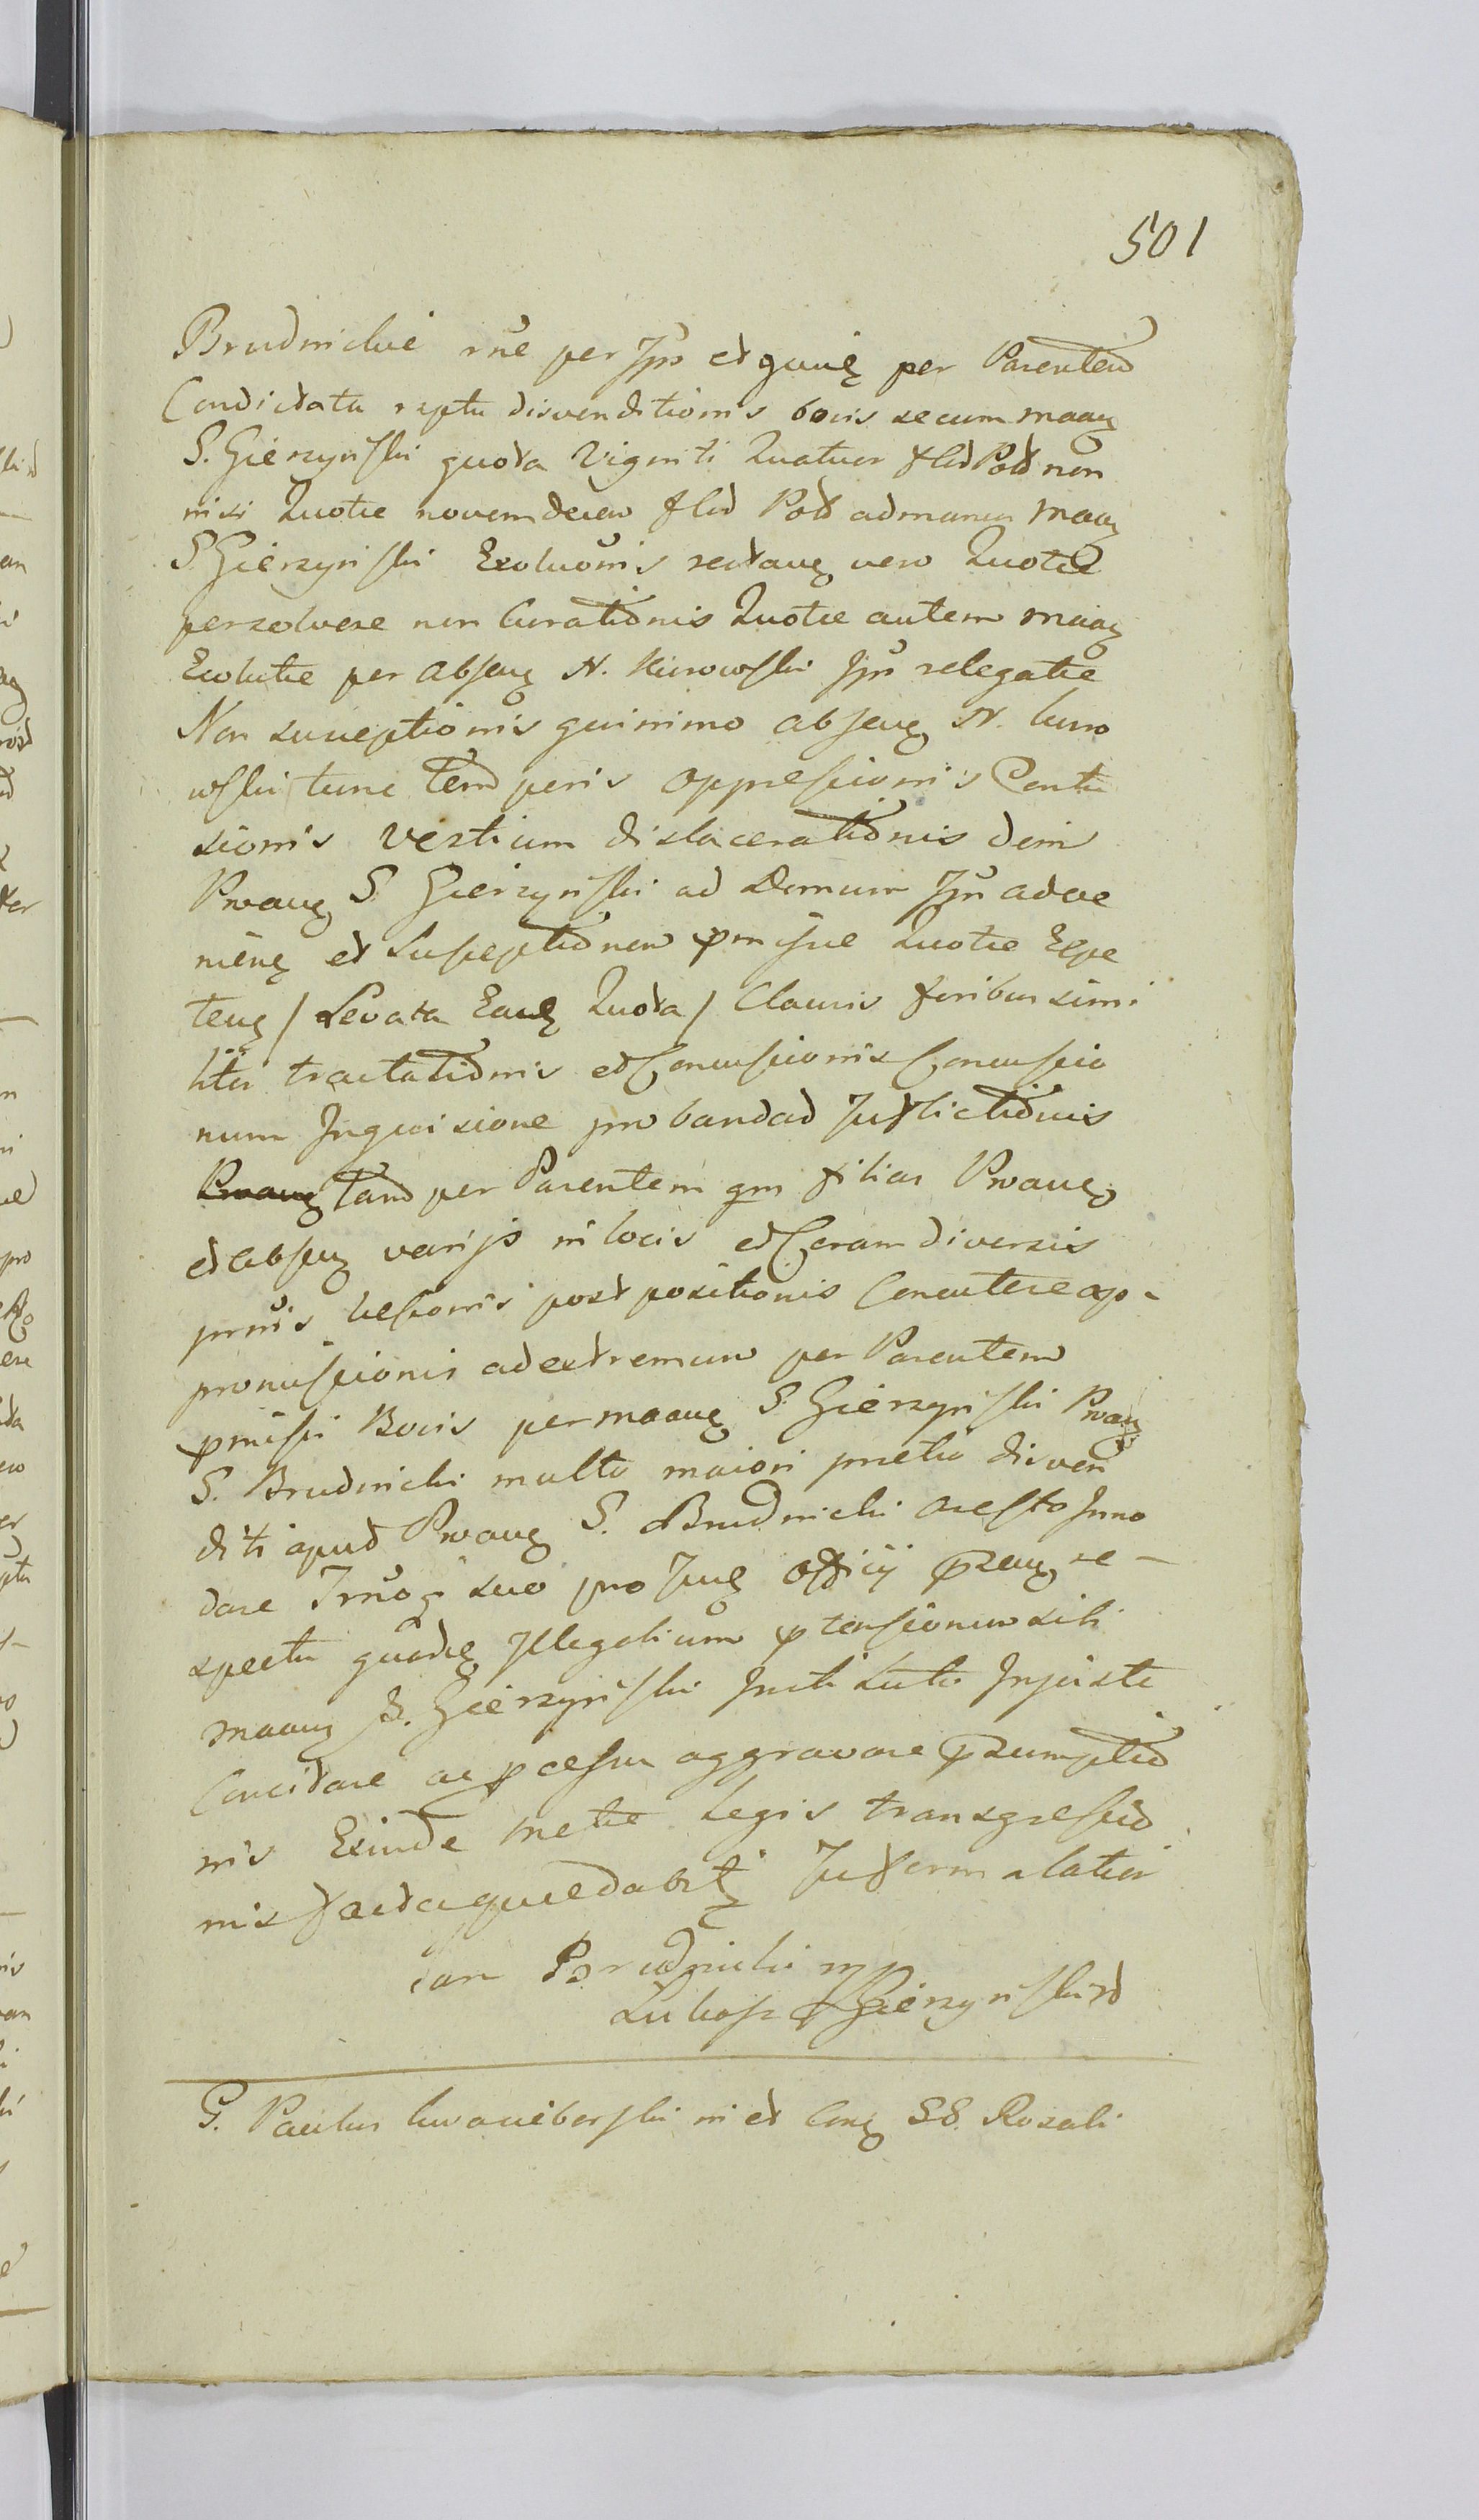 501
Brudnickie rñe per Jpn et quiq per Parentem
Condictata rsptu disvenditionis bovis secum maaq
S. Gierzyński quota Viginti Quatuor flld Pold non
nisi Quotæ novemdecem flld Pold ad manus Maaq
S Gierzyński Exoluõnis restanq vero Quotæ
persolvere non Curationis Quotæ autem maaq
Exolutæ per Absenq N. Kurowski Jpn relegatæ
Non susceptionis quinimo absenq N. Kuro
wski tunc temporis oppressionis Contu
sionis vestium dislacerationis dein
Pwanq S Gierzyński ad Domum Jpn adve
nienq et Susceptionem pmissæ Quotæ Expe
tenq / Levata Eanq Quota / Clausis foribus simi
liter tractationis et Concussionis Concussio
num Inquisione probandad Inflictionis
tam per Parentem qm filias Pwanq
et Absenq varijs in locis et Coram diversis
prnis læsionis postpositionis Concutere ap-
promissionis ad extremum per Parentem
pmissi Bovis per maanq S. Gierzyński Pwanq
S. Brudnicki multo maiori pretio disven
diti apud Pwanq S. Brudnicki Aresto Inno
dare suo pro Jnq Officij pzenq re-
spectu quarq Illegalium ptensionum sibi
maanq S. Gierzyński Institutio Injuste
Concitare ac pcessu aggravare pzumptio
nis Exinde metæ Legis transgressio
nis facta quæ dabit Informalatior
Jan Brudnicki mp
Lukasz Gierzyński
G. Paulus in et Conq SS. Rozali